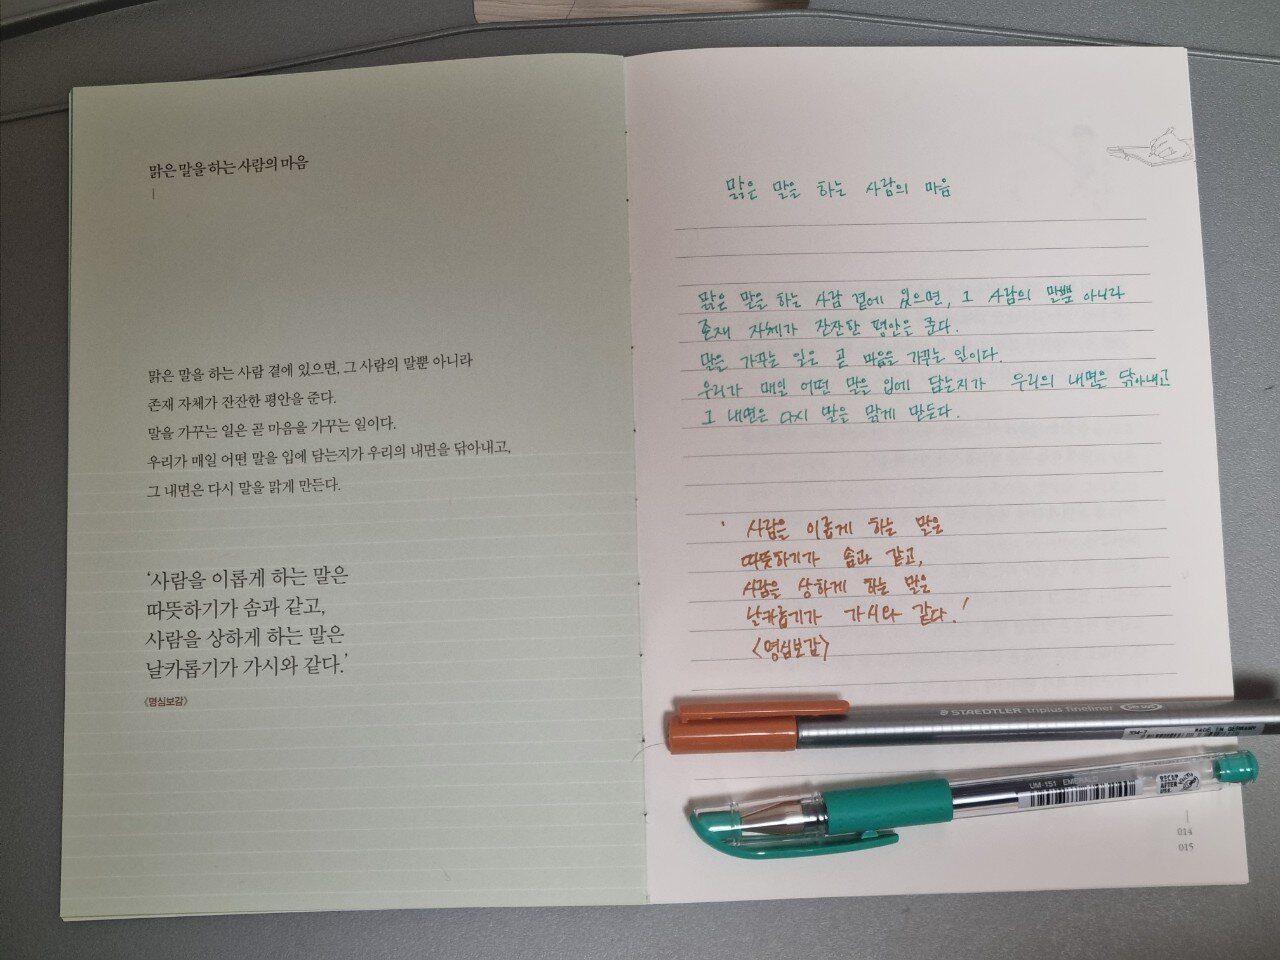 맑은 말을 하는 사람의 마음
맑은 말을 하는 사람 곁에 있으면, 그 사람의 말뿐 아니라
존재 자체가 잔잔한 평안을 준다.
말을 가꾸는 일은 곧 마음을 가꾸는 일이다.
우리가 매일 어떤 말을 입에 담는지가 우리의 내면을 닦아내고,
그 내면은 다시 말을 맑게 만든다.
‘사람을 이롭게 하는 말은
따뜻하기가 솜과 같고,
사람을 상하게 하는 말은
날카롭기가 가시와 같다.’
《명심보감》
맑은 말을 하는 사람의 마음
맑은 말을 하는 사람 곁에 있으면, 그 사람의 말뿐 아니라
존재 자체가 잔잔한 평안을 준다.
말을 가꾸는 일은 곧 마음을 가꾸는 일이다.
우리가 매일 어떤 말을 입에 담는지가 우리의 내면을 닦아내고
그 내면은 다시 말을 맑게 만든다.
' 사람을 이롭게 하는 말은
따뜻하기가 솜과 같고,
사람을 상하게 하는 말은
날카롭기가 가시와 같다.'
<명심보감>
STAEDTLER triplus fineliner
334-7 MADE IN GERMANY
UM-151 EMERALD
RECAP AFTER USE
014
015